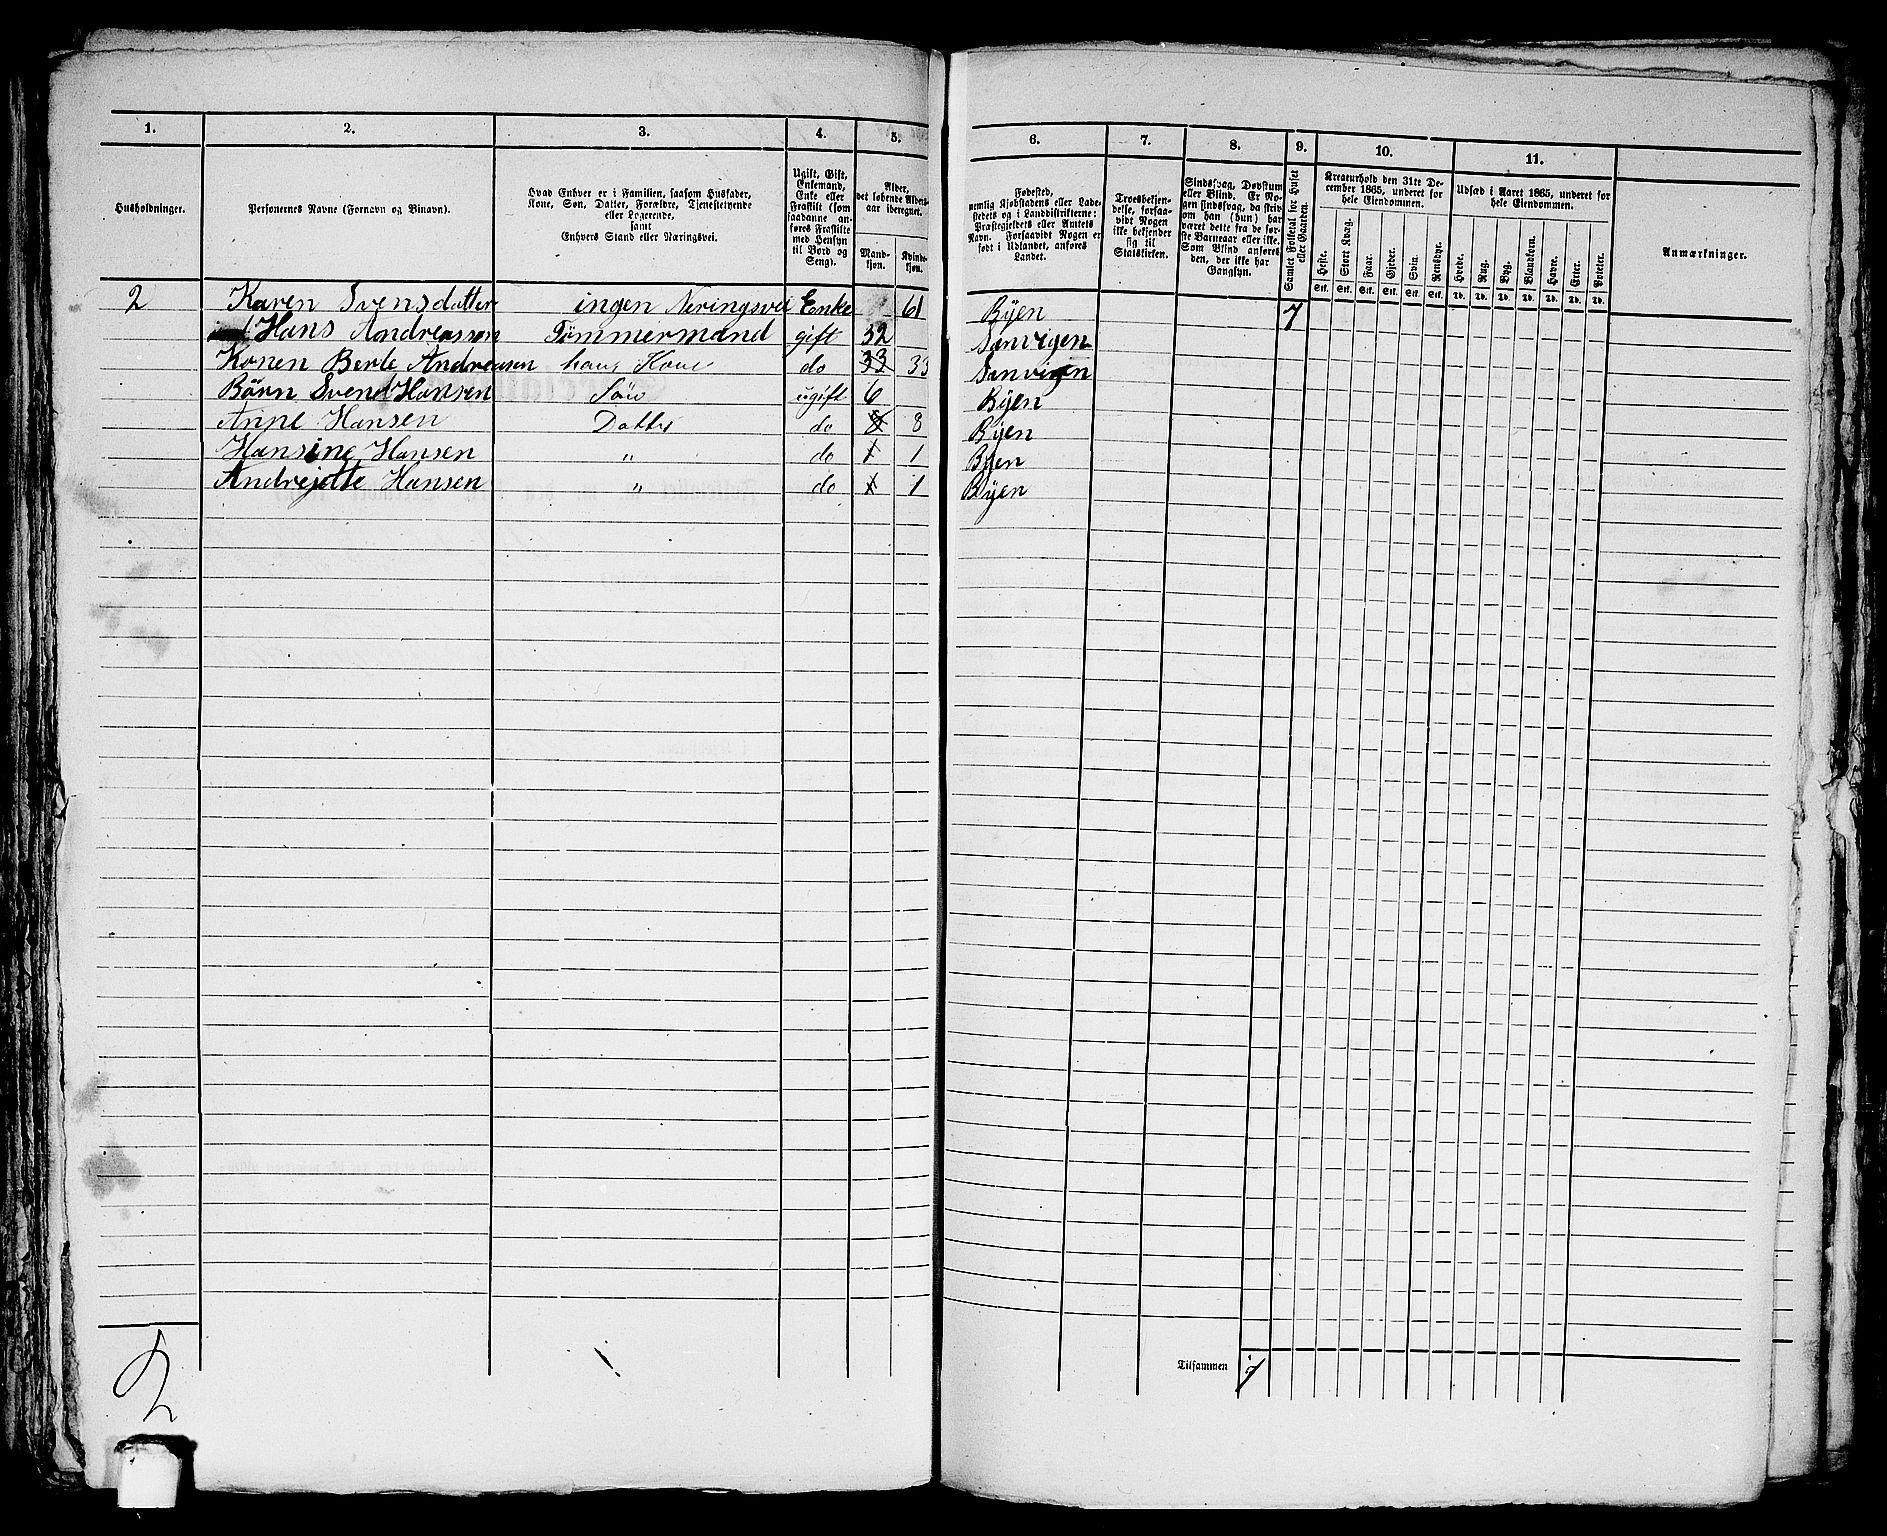 1. 2. 3. 4. 5. 6. 7. 8. 9. 10. 11.
Husholdninger.
Personernes Navne (Fornavn og Binavn).
Hvad Enhver er i Familien, saasom Husfader,
Kone, Søn, Datter, Forældre, Tjenestetyende
eller Logerende,
samt
Enhvers Stand eller Næringsvei.
Ugift, Gift,
Enkemand,
Enke eller
Fraskilt (som
saadanne an-
føres Fraskilte
med Hensyn
til Bord og
Seng).
Alder,
det løbende Alders-
aar iberegnet.
Mand-
kjøn.
Kvinde-
kjøn.
Fødested,
nemlig Kjøbstadens eller Lade-
stedets og i Landdistrikterne:
Præstegjeldets eller Amtets
Navn. Forsaavidt Nogen er
født i Udlandet, anføres
Landet.
Troesbekjen-
delse, forsaa-
vidt Nogen
ikke bekjender
sig til
Statskirken.
Sindssvag, Døvstum
eller Blind. Er No-
gen sindssvag, da skriv
om han (hun) har
været dette fra de før-
ste Barneaar eller ikke.
Som Blind anføres
den, der ikke har
Gangsyn.
Samlet Folketal for Huset
eller Gaarden.
Kreaturhold den 31te De-
cember 1865, underet for
hele Eiendommen.
Heste. Stort Kvæg. Faar. Gjeder. Svin. Rensdyr.
Stk. Stk. Stk. Stk. Stk. Stk.
Udsæd i Aaret 1865, underet for
hele Eiendommen.
Hvede. Rug. Byg. Blandkorn. Havre. Erter. Poteter.
Td. Td. Td. Td. Td. Td. Td.
Anmærkninger.
2 Karen Svensdatter ingen Neringsvei Enke 61 Byen 7
Hans Andreassen Tømmermand gift 32 Sanvigen
Konen Berte Andreasen hans Kone do 33 33 Sanvigen
Børn Svend Hansen Søn ugift 6 Byen
Anne Hansen Datter do 8 8 Byen
Hansine Hansen " do 1 1 Byen
Andrejette Hansen " do 1 1 Byen
Tilsammen 7
2